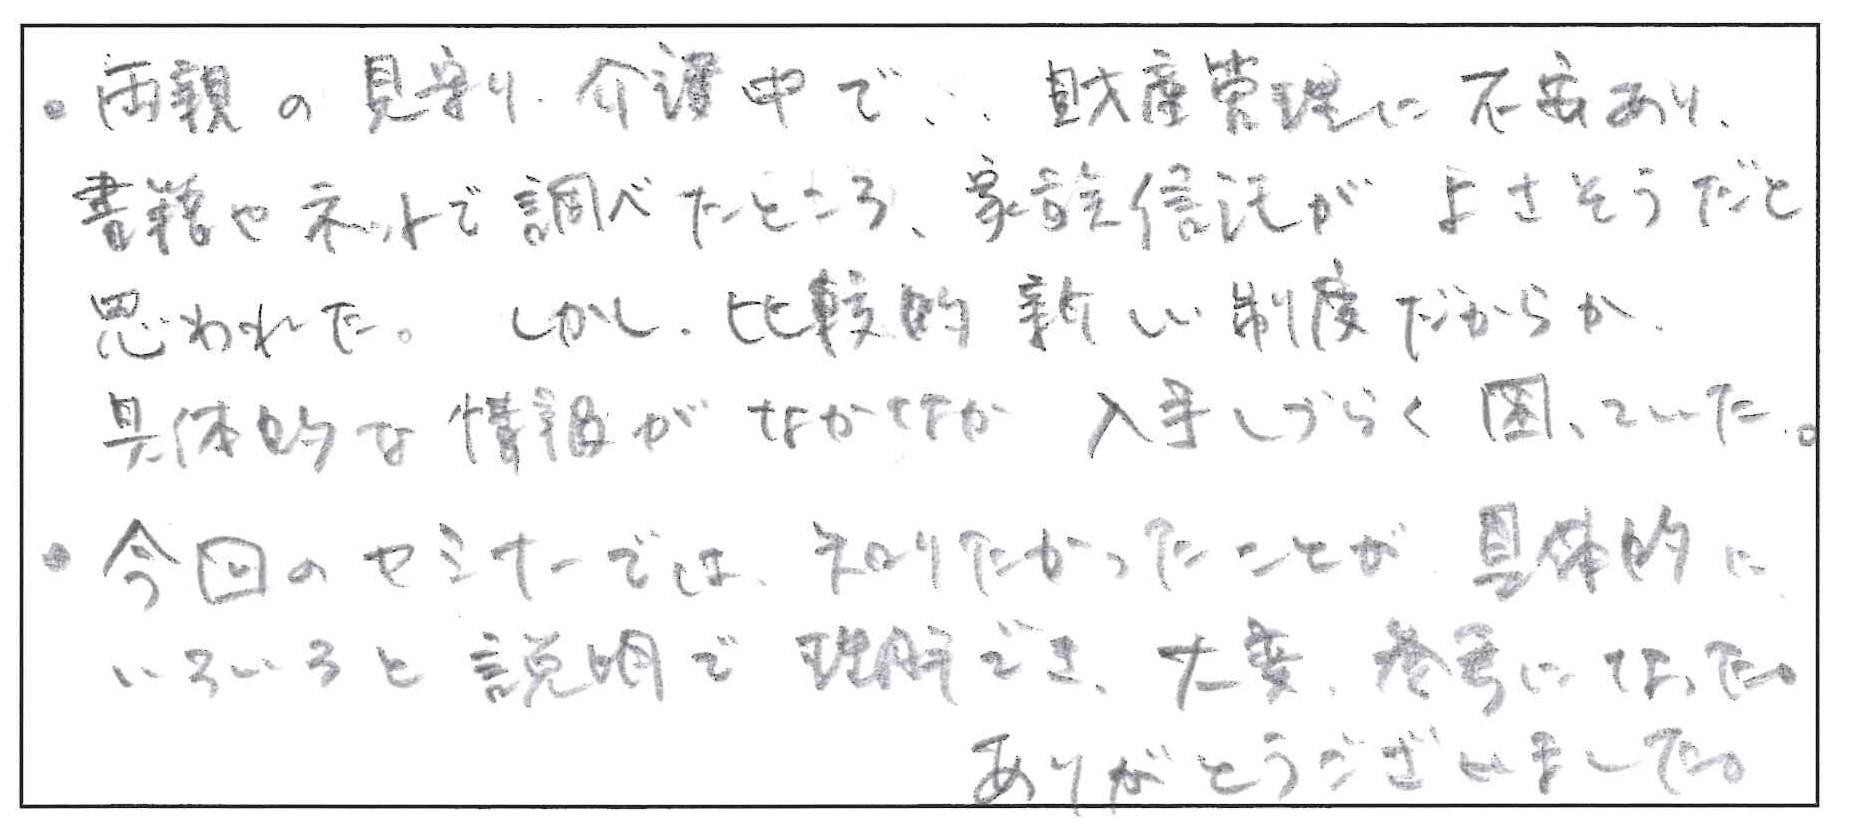 ・両親の見守り、介護中で、、財産管理に不安あり、
書籍やネットで調べたところ、家族信託がよさそうだと
思われた。しかし、比較的新しい制度だからか、
具体的な情報がなかなか入手しづらく困っていた。
・今回のセミナーでは、知りたかったことが具体的に
いろいろと説明で理解でき、大変、参考になった。
ありがとうございました。